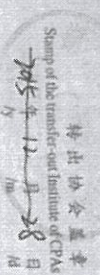 转出协会盖章
Stamp of the transfer-out Institute of CPAs
2015年12月28日
/y /m /d